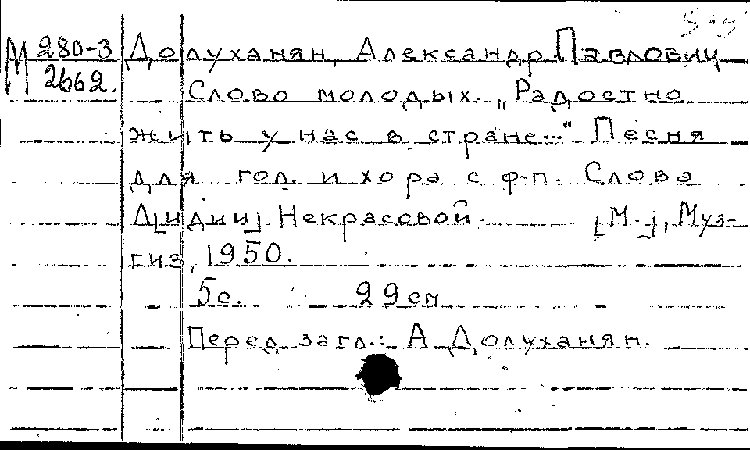 М 280-3 Долуханян, Александр Павлович
2662. Слово молодых. „Радостно
жить у нас в стране..." Песня
для гол. и хора с ф-п. Слова
Л[идии] Некрасовой. [М.], Муз-
гиз, 1950.
5с. 29см
Перед загл.: А. Долуханян.